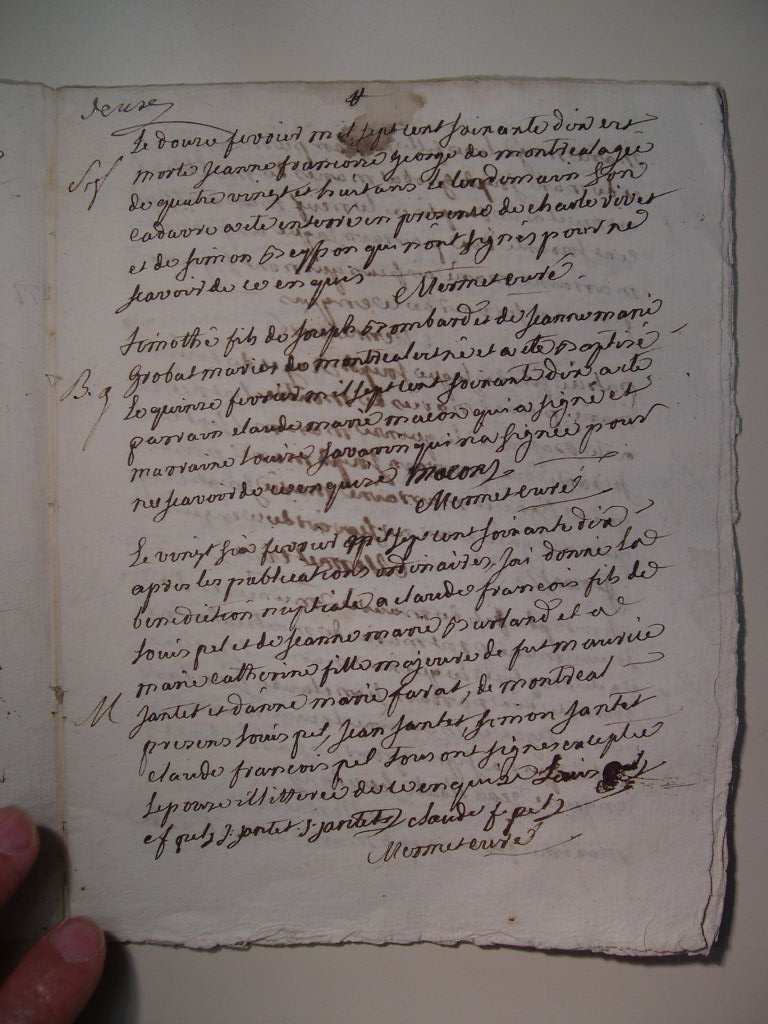 deuxe
Le douze fevrier mil sept cent soixante dix est
Sep
morte jeanne francoise george de montreal agée
de quatre vingt et huit ans le lendemain son
cadavre a eté enterre en presence de charle vivet
et de simon Beysson qui n'ont signés pour ne
scavoir de ce enquis Mermet curé.
timothé fils de joseph Bombard et de jeanne marie
Grobat mariés de montreal est né et a eté Baptisé
B. g
Le quinze fevrier mil sept cent soixante dix a eté
parrain claude marie macon qui a signé et
marraine Louise Savarin qui n'a signée pour
ne scavoir de ce enquise macon
Mermet curé
Le vingt six fevrier mil sept cent soixante dix
apres les publications ordinaires, j'ai donné la
benediction nuptiale a claude francois fils de
Louis pel et de jeanne marie Burland et a
marie catherine fille majeure de fut maurice
M
jantet et d'anne marie farat, de montreal
presens Louis pel, jean jantet, simon jantet
claude francois pel tous ont signés exceptée
Lepouse illitterée de ce enquise Louis pel
c f pel j. jantet s. jantet claude f. pel
Mermet curé